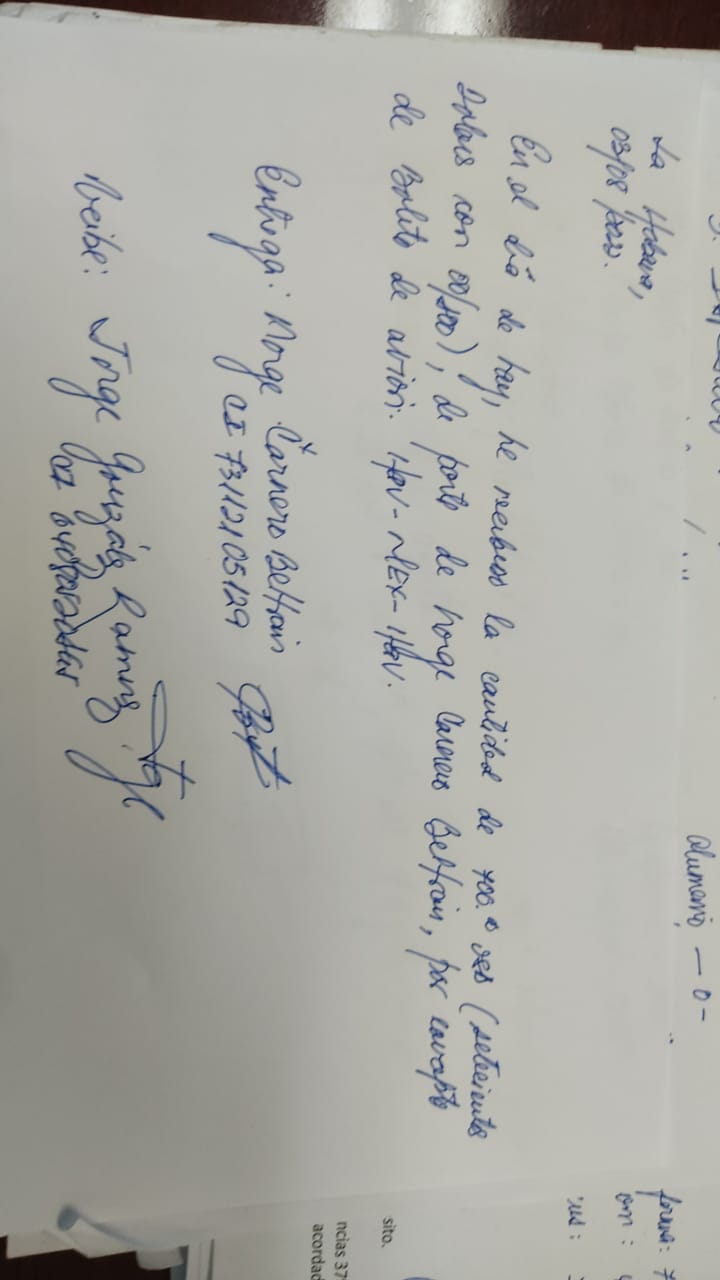 La Habana,
En el día de hoy, he recibido la cantidad de 700.00 USD (setecientos
con 00/100), de parte de Norge Carnero Beltrán, por concepto
de Boleto de avión. HAV-MEX-HAV.
Entrega: Norge Carnero Beltrán
CI 73112105129
Recibe: Jorge González Ramírez
CI
alumano — 0 —
forma: 7
om:
sito.
ncias 37
acordad